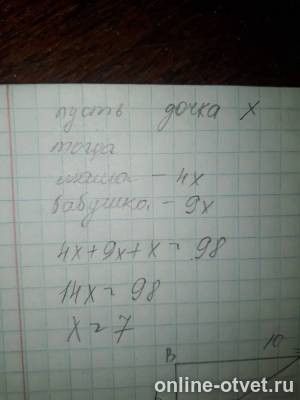 пусть дочка X
тогда
мама - 4x
бабушка - 9x
4x+9x+x=98
14x=98
x=7
B 10
online-otvet.ru